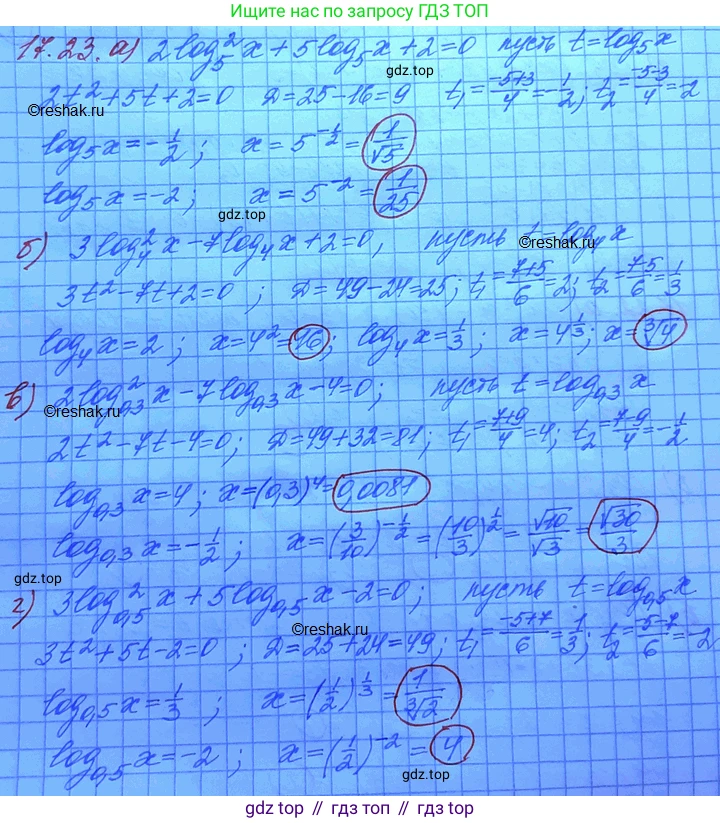 Ищите нас по запросу ГДЗ ТОП
17.23. а) 2log₅²x + 5log₅x + 2 = 0 пусть t = log₅x
gdz.top
2t² + 5t + 2 = 0 D = 25 - 16 = 9 t₁ = (-5+3)/4 = -1/2; t₂ = (-5-3)/4 = -2
©reshak.ru
log₅x = -1/2; x = 5^(-1/2) = 1/√5
log₅x = -2; x = 5^(-2) = 1/25
gdz.top
б) 3log₄²x - 7log₄x + 2 = 0, пусть t = log₄x
©reshak.ru
3t² - 7t + 2 = 0; D = 49 - 24 = 25; t₁ = (7+5)/6 = 2; t₂ = (7-5)/6 = 1/3
log₄x = 2; x = 4² = 16; log₄x = 1/3; x = 4^(1/3); x = ∛4
в) 2log₀,₃²x - 7log₀,₃x - 4 = 0; пусть t = log₀,₃x
©reshak.ru
2t² - 7t - 4 = 0; D = 49 + 32 = 81; t₁ = (7+9)/4 = 4; t₂ = (7-9)/4 = -1/2
log₀,₃x = 4; x = (0,3)⁴ = 0,0081
log₀,₃x = -1/2; x = (3/10)^(-1/2) = (10/3)^(1/2) = √10/√3 = √30/3
gdz.top
г) 3log₀,₅²x + 5log₀,₅x - 2 = 0; пусть t = log₀,₅x
©reshak.ru
3t² + 5t - 2 = 0; D = 25 + 24 = 49; t₁ = (-5+7)/6 = 1/3; t₂ = (-5-7)/6 = -2
log₀,₅x = 1/3; x = (1/2)^(1/3) = 1/∛2
log₀,₅x = -2; x = (1/2)^(-2) = 4
gdz.top
gdz.top // гдз топ // gdz.top